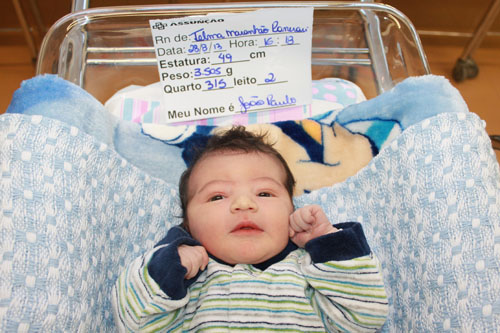 ASSUNÇÃO
Rn de: Telma Maranhão
Data: 28/8/13 Hora: 16:13
Estatura: 49 cm
Peso: 3.505 g
Quarto 315 leito 2
Meu Nome é João Paulo